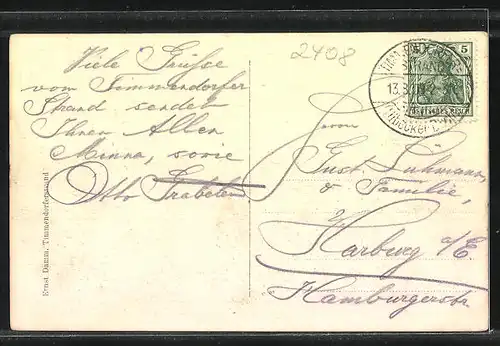 Viele Grüsse
vom Timmendorfer
Strand sendet
Ihnen Allen
Minna, sowie
Otto Grabelen
2408
5
13.
Herrn
Gust. Luhmann,
& Familie,
Harburg a/E.
Hamburgerstr.
Ernst Damm, Timmendorferstrand